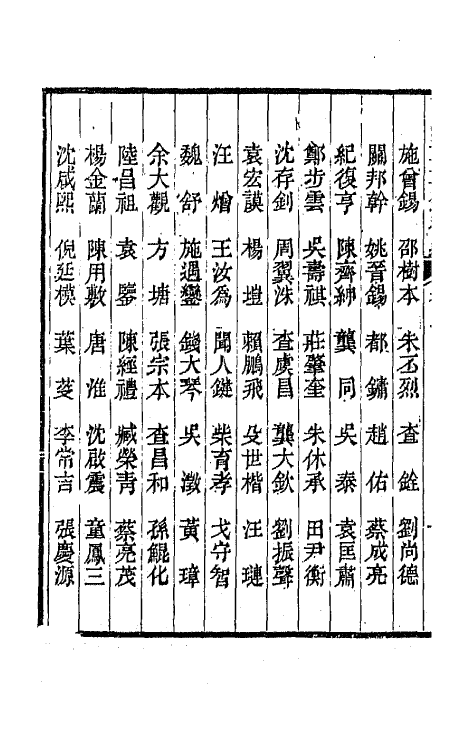 施曾錫 邵樹本 朱丕烈 査銓 劉尚德
關邦幹 姚晉錫 都鏞 趙佑 蔡成亮
紀復亨 陳齊紳 龔同 吳泰 袁匡肅
鄭步雲 吳壽祺 莊肇奎 朱休承 田尹衡
沈存釗 周翼洙 査虞昌 龔大欽 劉振聲
袁宏謨 楊塏 賴鵬飛 殳世楷 汪璉
汪熷 王汝為 聞人鍵 柴育孝 戈守智
魏舒 施遇鑾 錢大琴 吳澂 黃璋
余大觀 方塘 張宗本 査昌和 孫鯤化
陸昌祖 袁鑒 陳經禮 臧榮青 蔡亮茂
楊金蘭 陳用敷 唐淮 沈啟震 童鳳三
沈咸熙 倪廷模 葉蓤 李常吉 張慶源